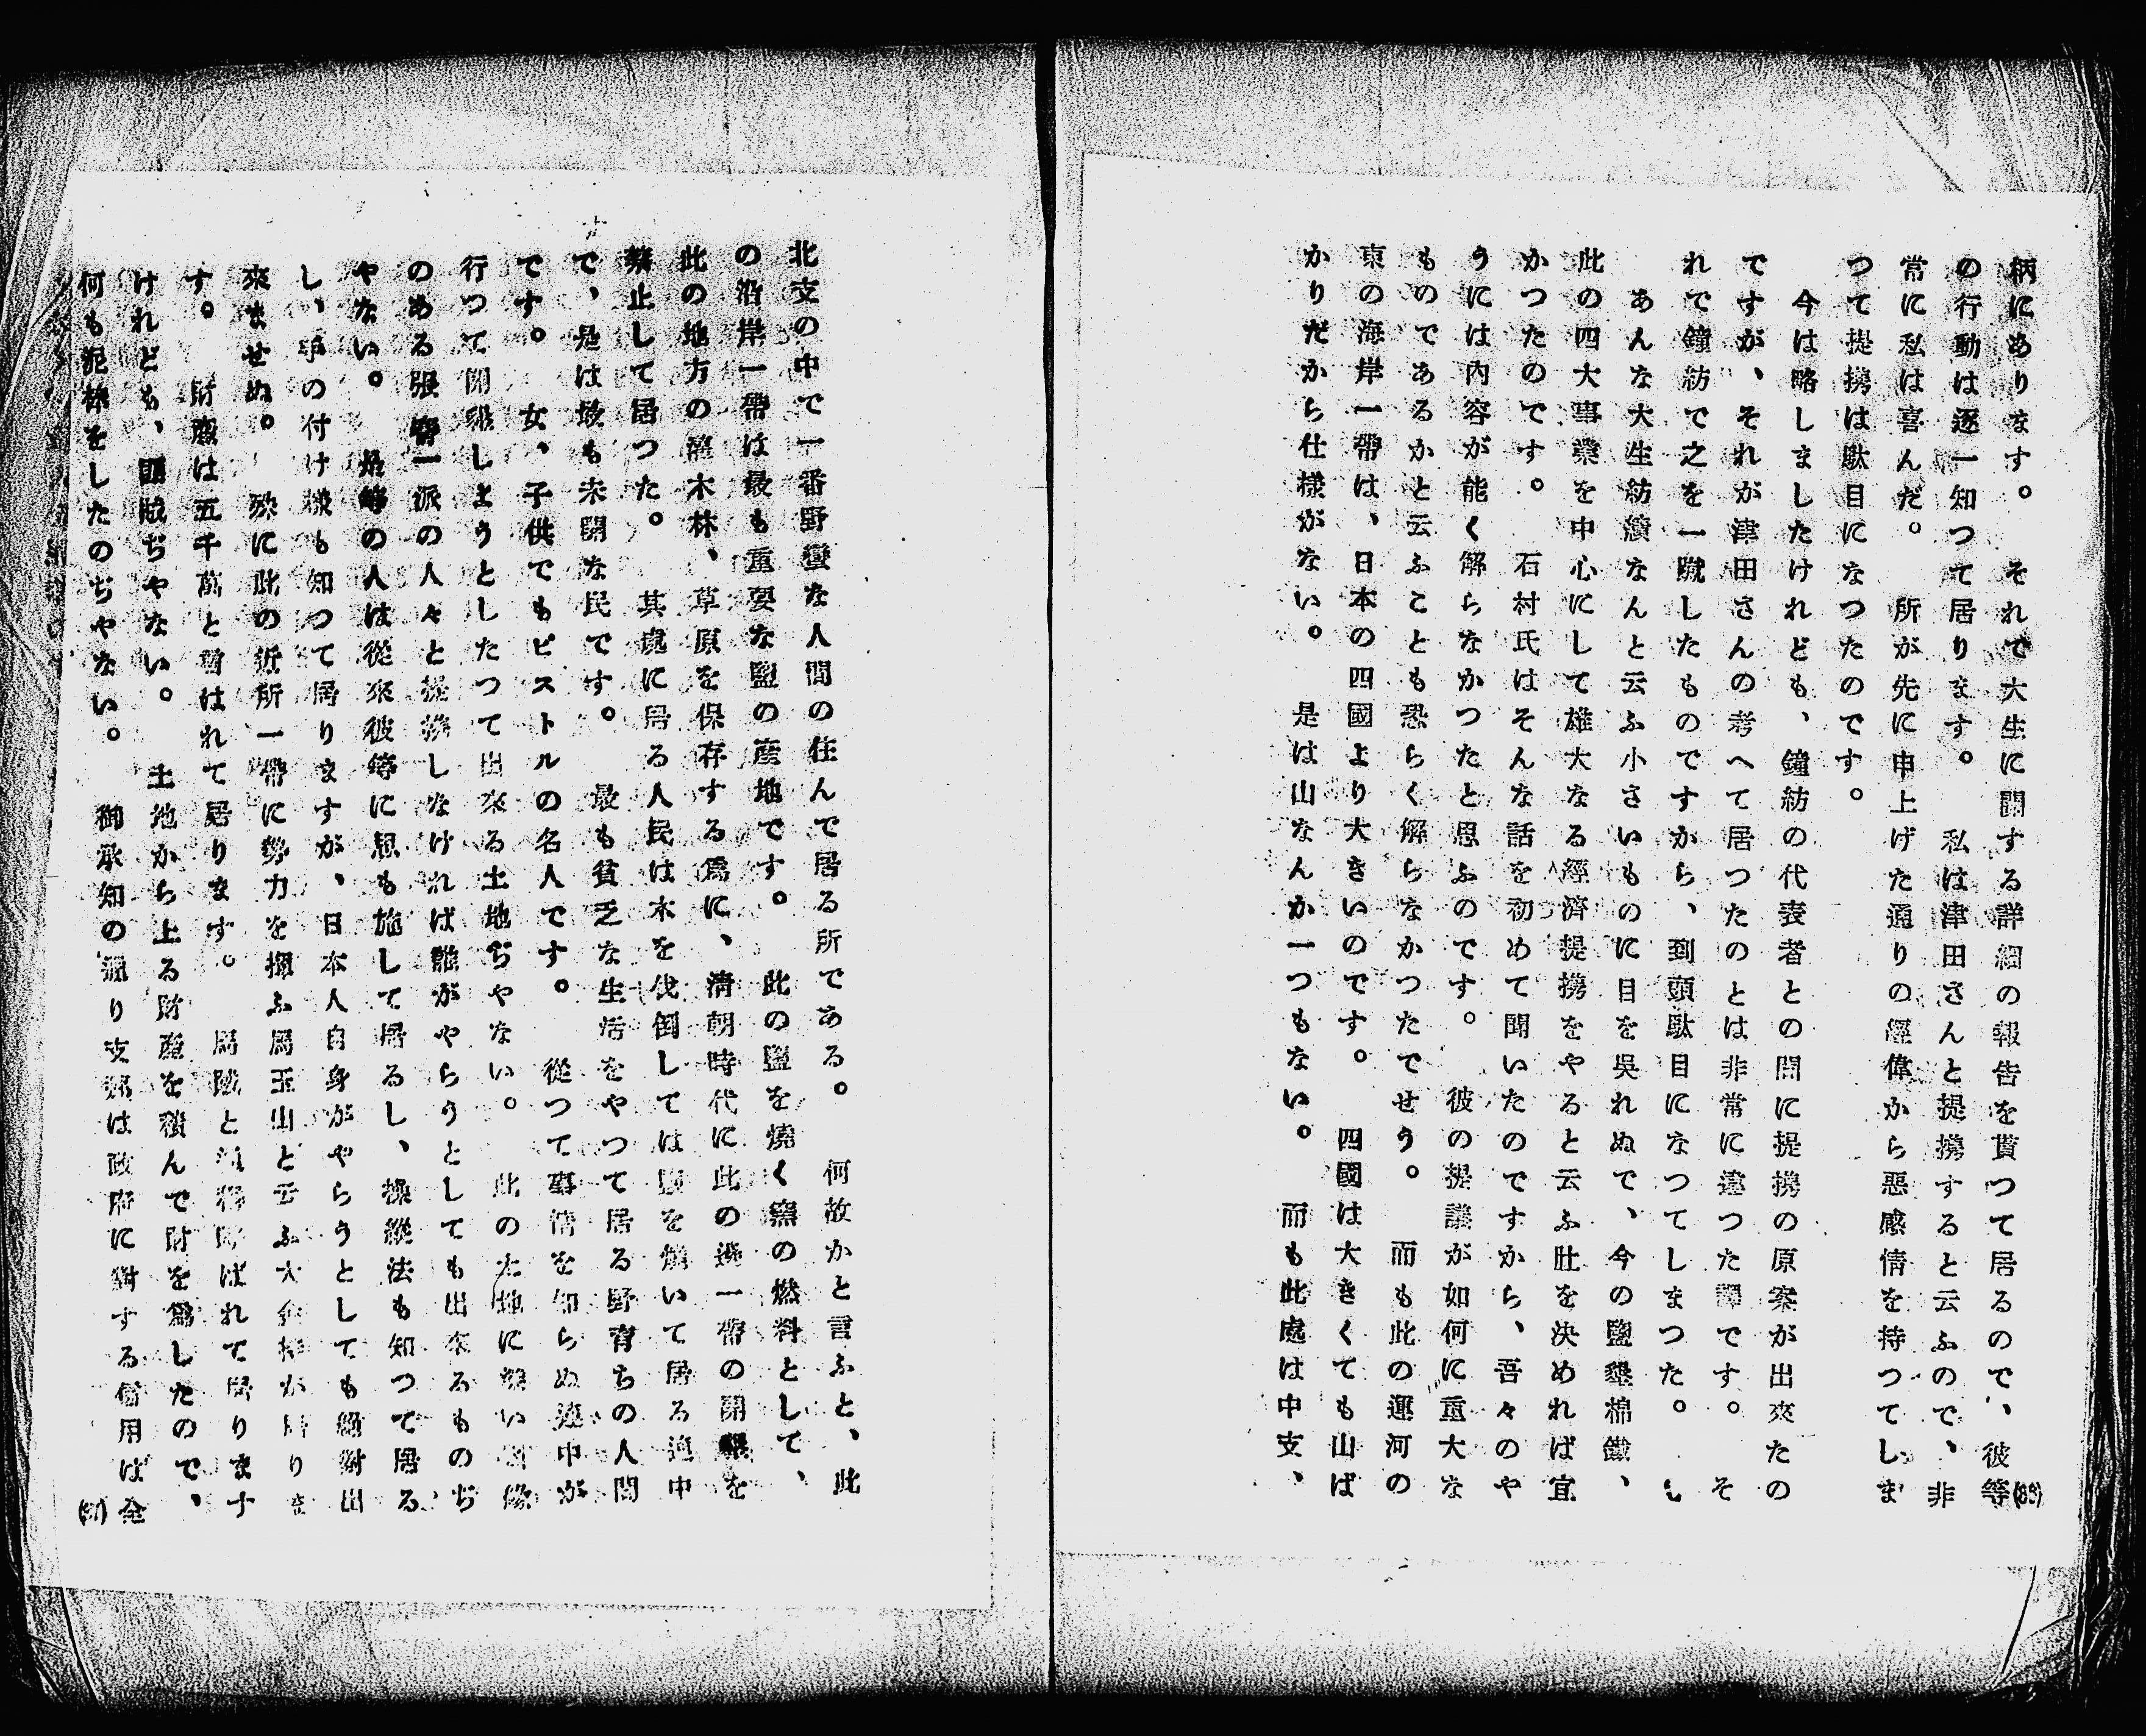 柄にあります。　それで大生に關する詳細の報告を貰つて居るので、彼等
の行動は逐一知つて居ります。　私は津田さんと提携すると云ふので、非
常に私は喜んだ。　所が先に申上げた通りの經偉から惡感情を持つてしま
つて提携は駄目になつたのです。
今は略しましたけれども、鐘紡の代表者との間に提携の原案が出來たの
ですが、それが津田さんの考へて居つたのとは非常に違つた譯です。　そ
れで鐘紡で之を一蹴したものですから、到頭駄目になつてしまつた。　し
あんな大生紡績なんと云ふ小さいものに目を吳れぬで、今の鹽墾棉鐵、
此の四大事業を中心にして雄大なる經濟提携をやると云ふ肚を決めれば宜
かつたのです。　石村氏はそんな話を初めて聞いたのですから、吾々のや
うには內容が能く解らなかつたと思ふのです。　彼の提議が如何に重大な
ものであるかと云ふことも恐らく解らなかつたでせう。　而も此の運河の
東の海岸一帶は、日本の四國より大きいのです。　四國は大きくても山ば
かりだから仕樣がない。　是は山なんか一つもない。　而も此處は中支、
北支の中で一番野蠻な人間の住んで居る所である。　何故かと言ふと、此
の沿岸一帶は最も重要な鹽の產地です。　此の鹽を燒く窯の燃料として、
此の地方の灌木林、草原を保存する爲に、淸朝時代に此の邊一帶の開墾を
禁止して居つた。　其處に居る人民は木を伐倒しては鹽を燒いて居る連中
で、是は最も未開な民です。　最も貧乏な生活をやつて居る野育ちの人間
です。　女、子供でもピストルの名人です。　從つて事情を知らぬ連中が
行つて開墾しようとしたつて出來る土地ぢやない。　此の土地に深い關係
のある張謇一派の人々と提携しなければ誰がやらうとしても出來るものぢ
やない。　是等の人は從來彼等に恩も施して居るし、操縱法も知つて居る
し、事の付け樣も知つて居りますが、日本人自身がやらうとしても絕對出
來ませぬ。　殊に此の近所一帶に勢力を揮ふ馬玉山と云ふ大金持が居りま
す。　財產は五千萬と言はれて居ります。　馬賊と　　ばれて居ります
けれども、匪賊ぢやない。　土地から上る財產を積んで財を爲したので、
何も泥棒をしたのぢやない。　御承知の通り支那は政府に對する信用は全